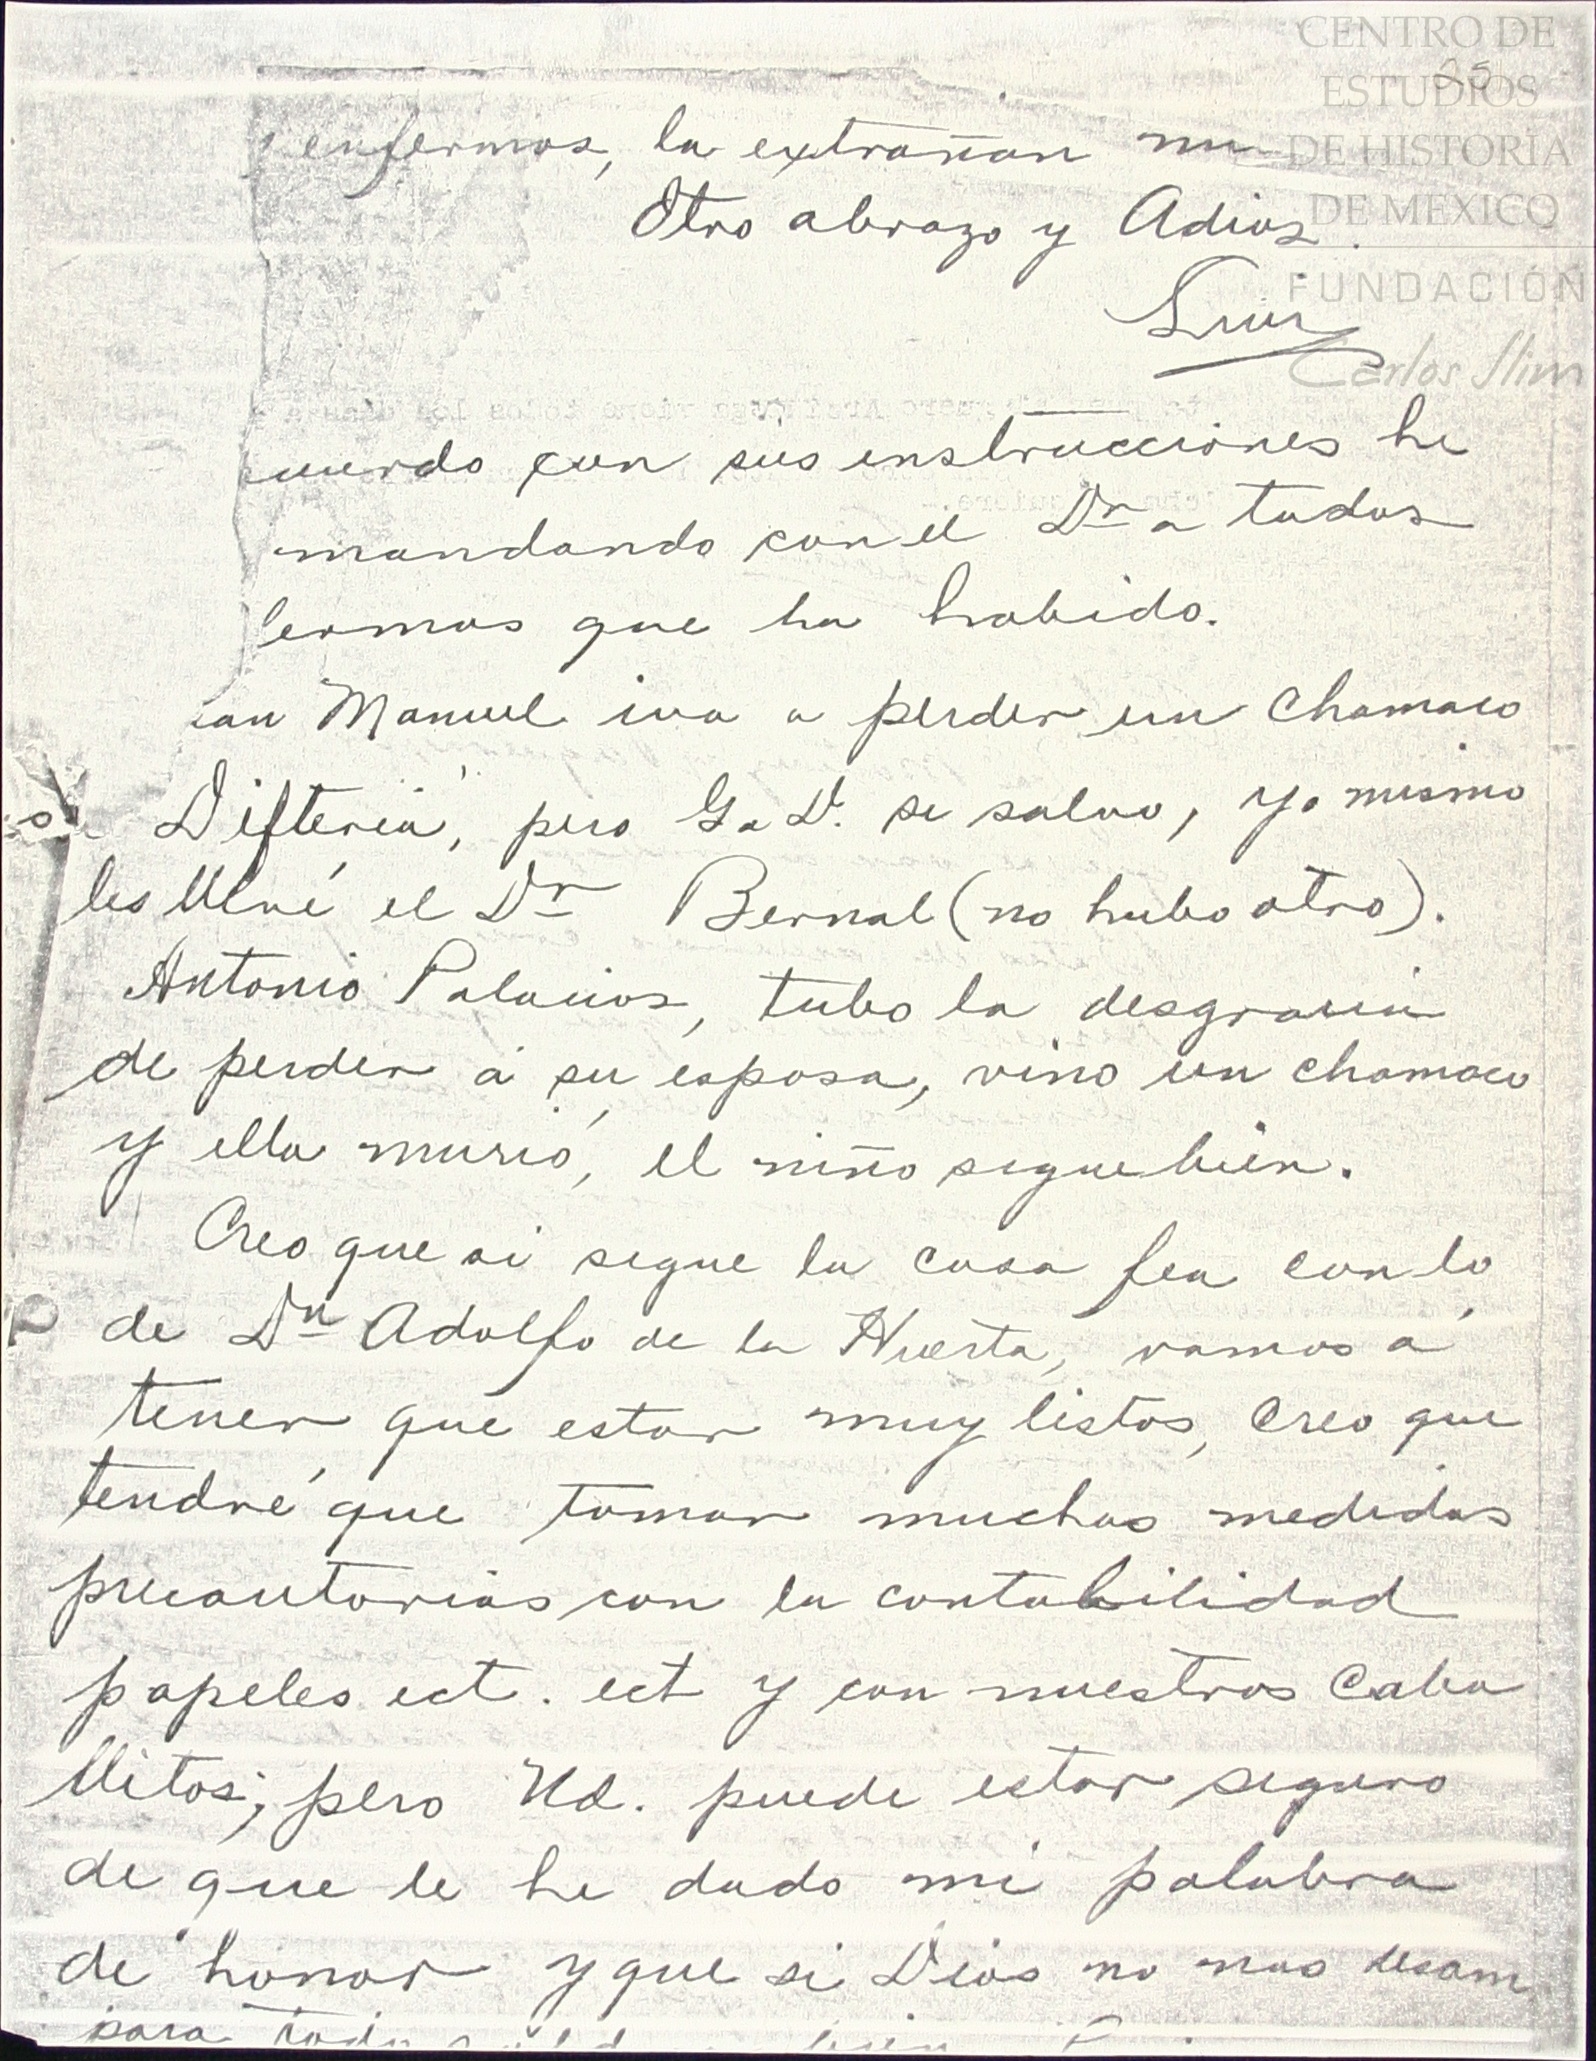 CENTRO DE
ESTUDIOS
DE HISTORIA
DE MEXICO
FUNDACIÓN
Carlos Slim
25
enfermos, la extrañan mu
Otro abrazo y Adios.
Luis
uerdo con sus instrucciones he
mandando con el Dr a todos
fermos que ha habido.
Manuel iva a perder un chamaco
Difteria, pero G. a D. se salvo, yo mismo
les llevé el Dr Bernal (no hubo otro).
Antonio Palacios, tubo la desgracia
de perder á su esposa, vino un chamaco
y ella murió, el niño sigue bien.
Creo que si sigue la cosa fea con lo
de Dn Adolfo de la Huerta, vamos á
tener que estar muy listos, creo que
tendré que tomar muchas medidas
precautorias con la contabilidad
papeles ect. ect y con nuestros caba
llitos; pero Ud. puede estar seguro
de que le he dado mi palabra
de honor y que si Dios no nos desam
para